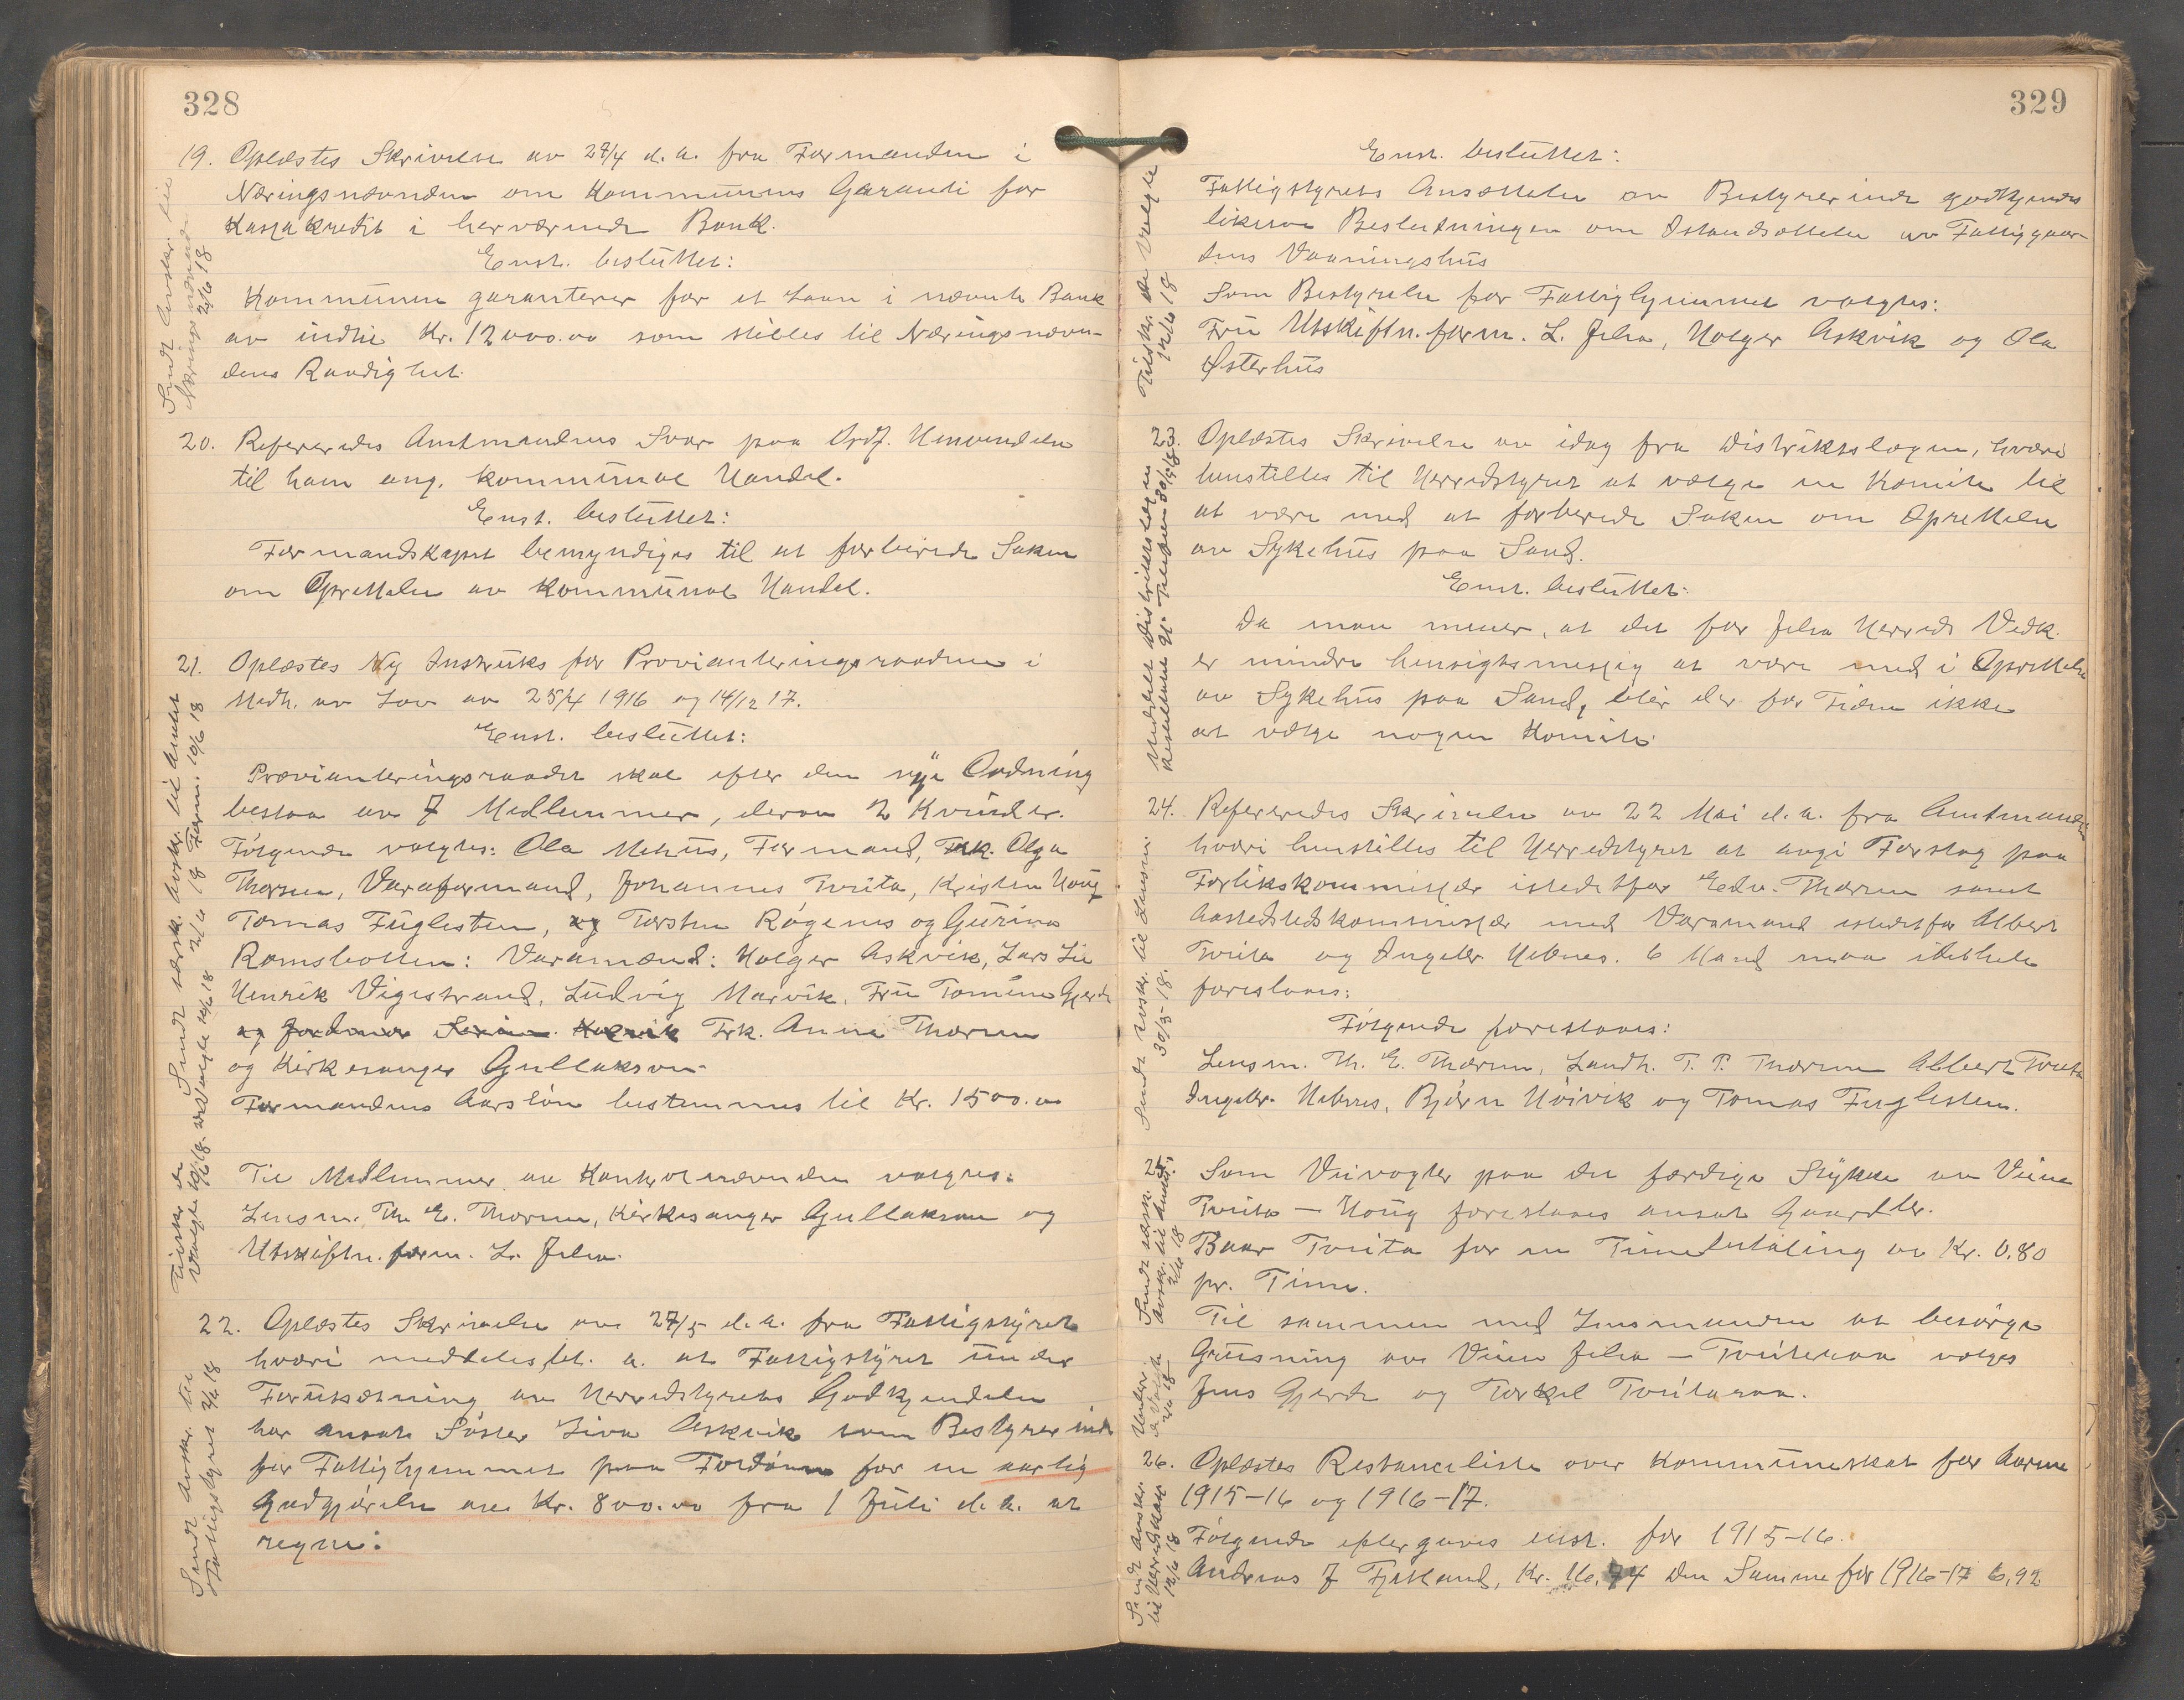 328
19. Oplæstes Skrivelse av 27/4 d.a. fra Formanden i
Næringsnævnden om Kommunens Garanti for
Kassakredit i herværende Bank.
Enst. besluttet:
Kommunen garanterer for et Laan i nævnte Bank
av indtil Kr. 12000.00 som stilles til Næringsnævn-
dens Raadighet.
Sendt Avskr. til
Næringsnævnda
2/6 18
20. Refereredes Amtmandens Svar paa Ordf. Henvendelse
til ham ang. kommunal Handel.
Enst. besluttet:
Formandskapet bemyndiges til at forberede Saken
om Oprettelse av kommunal Handel.
21. Oplæstes Ny Instruks for Provianteringsraadene i
Medh. av Lov av 25/4 1916 og 14/12 17.
Enst. besluttet:
Provianteringsraadet skal efter den nye Ordning
bestaa av 7 Medlemmer, derav 2 Kvinder.
Følgende valgtes: Ola Mehus, Formand, Frk. Olga
Thorsen, Varaformand, Johannes Tveita, Kristen Houg
Tomas Fuglesteen, og Torsten Røgenes og Gurina
Ramsbotten: Varamænd: Holger Askvik, Lars Lie
Henrik Vigestrand, Ludvig Marvik, Fru Tomine Gjerde
og Frk. Anna Thorsen
og Kirkesanger Gullakson
Formandens Aarsløn bestemmes til Kr. 1500.00
Til Medlemmer av Kontrolnævnden valgtes:
Lensm. Th. E. Thorsen, Kirkesanger Gullakson og
Utskiftn.form. L. Jelsa.
Sendt særsk. Avskr. til Amtet
2/6 18 Form. 10/6 18
Tilskr. de
Valgte
22. Oplæstes Skrivelse av 27/5 d.a. fra Fattigstyret
hvori meddeles bl. a. at Fattigstyret under
Forutsætning av Herredstyrets Godkjendelse
har ansat Søster Liva Askvik som Bestyrerinde
for Fattighjemmet paa Foldøen for en aarlig
Godtgjørelse av Kr. 800.00 fra 1 Juli d.a. at
regne:
Sendt Avskr. til
Fattigstyret 2/6 18
329
Enst. besluttet:
Fattigstyrets Ansættelse av Bestyrerinde godkjendes
likesaa Beslutningen om Istandsættelse av Fattiggaar-
dens Vaaningshus
Som Bestyrelse for Fattighjemmet valgtes:
Fru Utskiftn.form. L. Jelsa, Holger Askvik og Ola
Østerhus
Tilskr. de Valgte
12/6 18
23. Oplæstes Skrivelse av idag fra Distriktslægen, hvori
henstilles til Herredstyret at vælge en Komite til
at være med at forberede Saken om Oprettelse
av Sykehus paa Sand.
Enst. besluttet:
Da man mener, at det for Jelsa Herreds Vedk.
er mindre hensigtsmessig at være med i Oprettelse
av Sykehus paa Sand, blir der for Tiden ikke
at vælge nogen Komite.
Meddelt Distriktslægen
24. Refereredes Skrivelse av 22 Mai d.a. fra Amtmanden
hvori henstilles til Herredstyret at avgi Forslag paa
Forlikskommissær istedetfor Edv. Thorsen samt
Aastedstedskommissær med Varamand istedetfor Albert
Tveita og Ingebr. Hebnes. 6 Mand maa ialtheta
foreslaaes:
Følgende foreslaaes:
Lensm. Th. E. Thorsen, Landh. T. P. Thorsen Albert Tveita
Ingebr. Hebnes, Bjørn Høivik og Tomas Fuglesteen.
Sendt avskr. til Lensm.
30/5-18.
25. Som Veivogter paa det færdige Stykke av Veien
Tveita – Houg foreslaaes ansat Gaardbr.
Baar Tveita for en Timebetaling av Kr. 0.80
pr. Time.
Til sammen med Lensmanden at besørge
Grusning av Veien Jelsa – Tveiteraa valges
Jens Gjerde og Torkel Tveitaraa.
Sendt særsk.
Avskr. til Amtet
2/6 18
26. Oplæstes Restanceliste over Kommuneskat for Aarene
1915–16 og 1916–17.
Følgende eftergaves enst. for 1915–16.
Andreas J Fjetland, Kr. 16,74 den Samme for 1916–17 6,92
Sendt Avskr.
til Herredskass
12/6 18